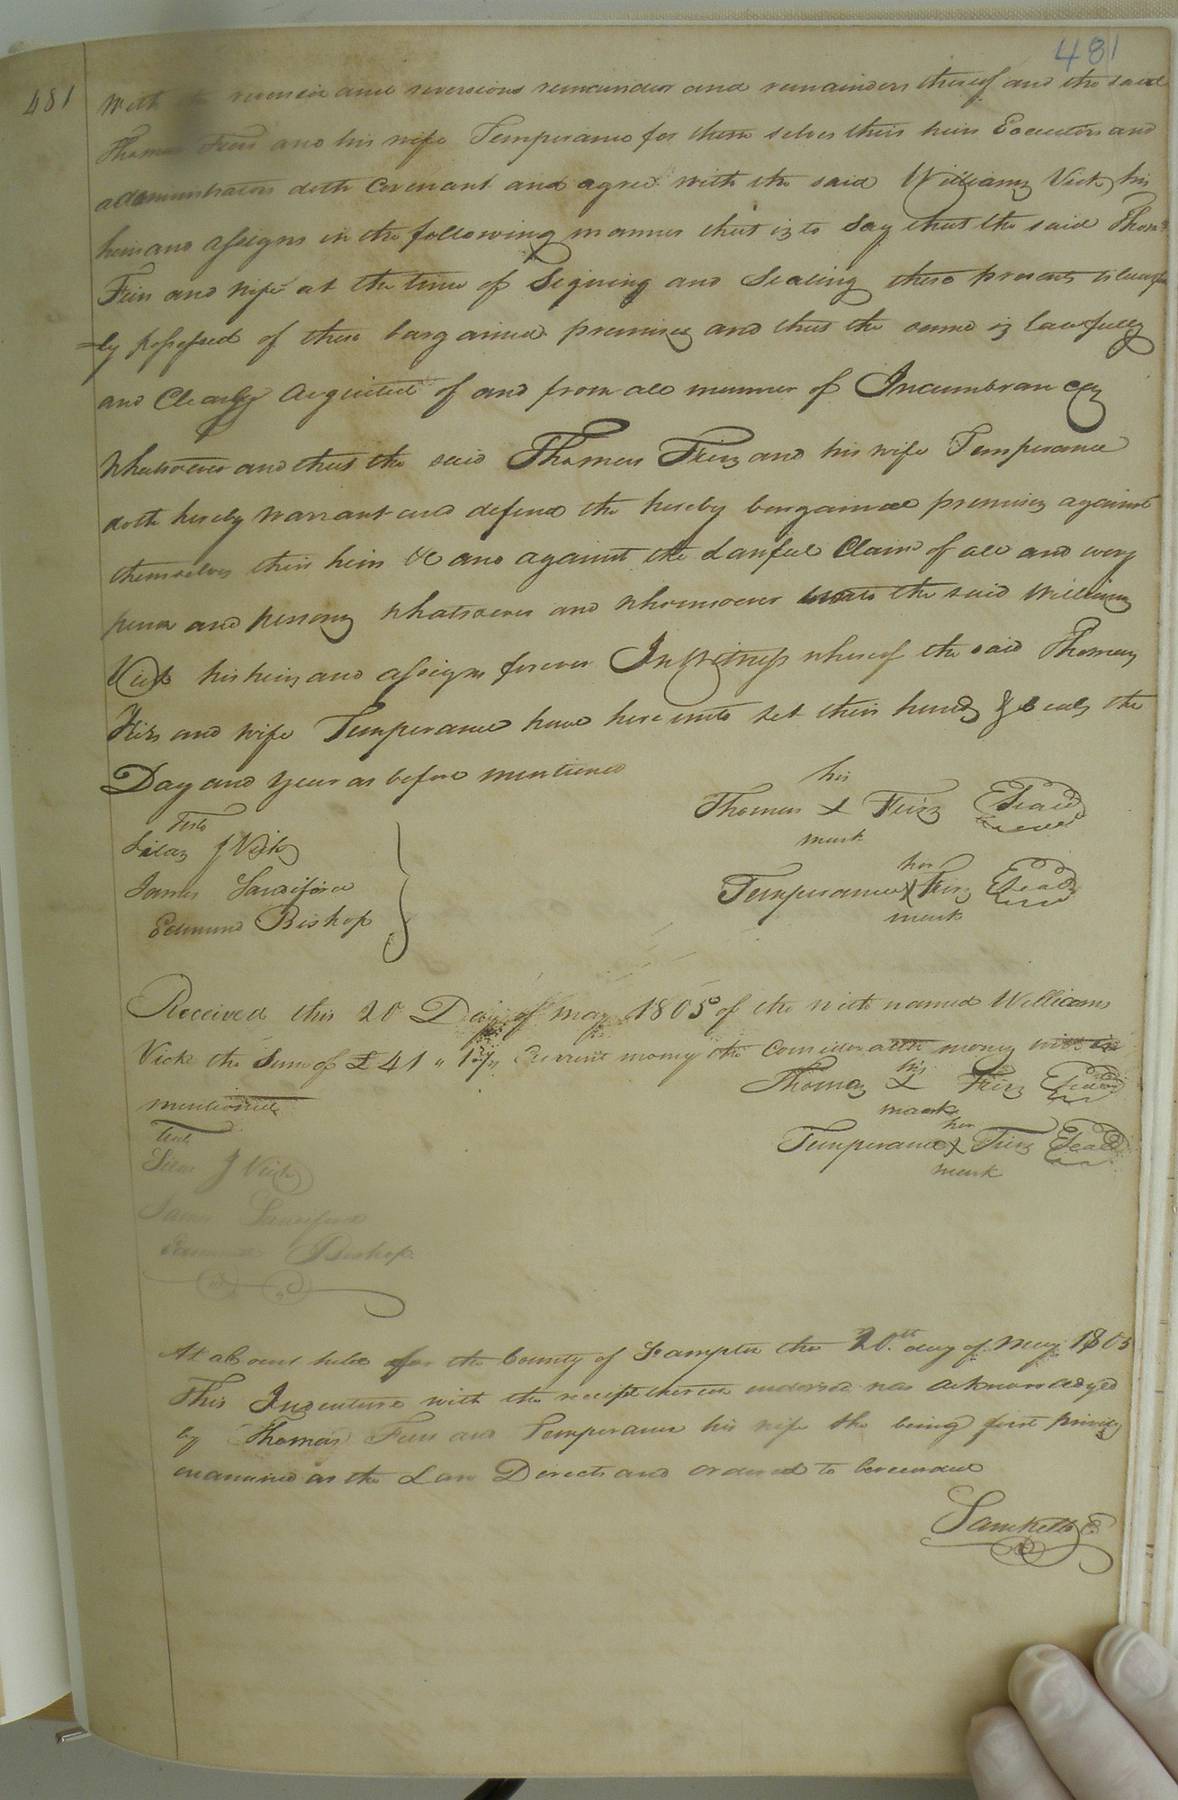 481
481
With the reversion and reversions remainder and remainders thereof and the said
Thomas Firs and his wife Temperance for them selves their heirs Executors and
administrators doth Covenant and agree with the said Williams Vick his
heirs and assigns in the following manner that is to Say that the said Thoms
Firs and wife at the time of Signing and Sealing these presents is lawful
=ly possessed of these bargained premises and that the same is lawfully
and Clearly Acquitted of and from all manner of Incumbrances
Whatsoever and that the said Thomas Firs and his wife Temperance
doth hereby Warrant and defend the hereby bargained premises against
themselves their heirs &c and against the Lawful Claim of all and every
person and persons whatsoever and whomsoever unto the said Williams
Vick his heirs and assigns forever In Witness whereof the said Thomas
Firs and wife Temperance have here unto set their hands & seals the
Day and year as before mentioned
his
Thomas X Firs Seal
mark
Teste
Silas J Vick
James Sandiford
Edmund Bishop
her
Temperance X Firs Seal
mark
Received this 20 Day of may 1805 of the with named Williams
Vick the Sum of £41 " Current money the Consideration money with in
mentioned
his
Thomas X Firs Seal
mark
her
Temperance X Firs Seal
mark
Test
Silas J Vick
James Sandiford
Edmund Bishop
At a Court held for the County of Sampton the 20th day of May 1805
This Indenture with the receipt thereon endorsed was acknowledged
by Thomas Firs and Temperance his wife she being first privily
examined as the Law Directs and ordered to be recorded
Saml Kello C.